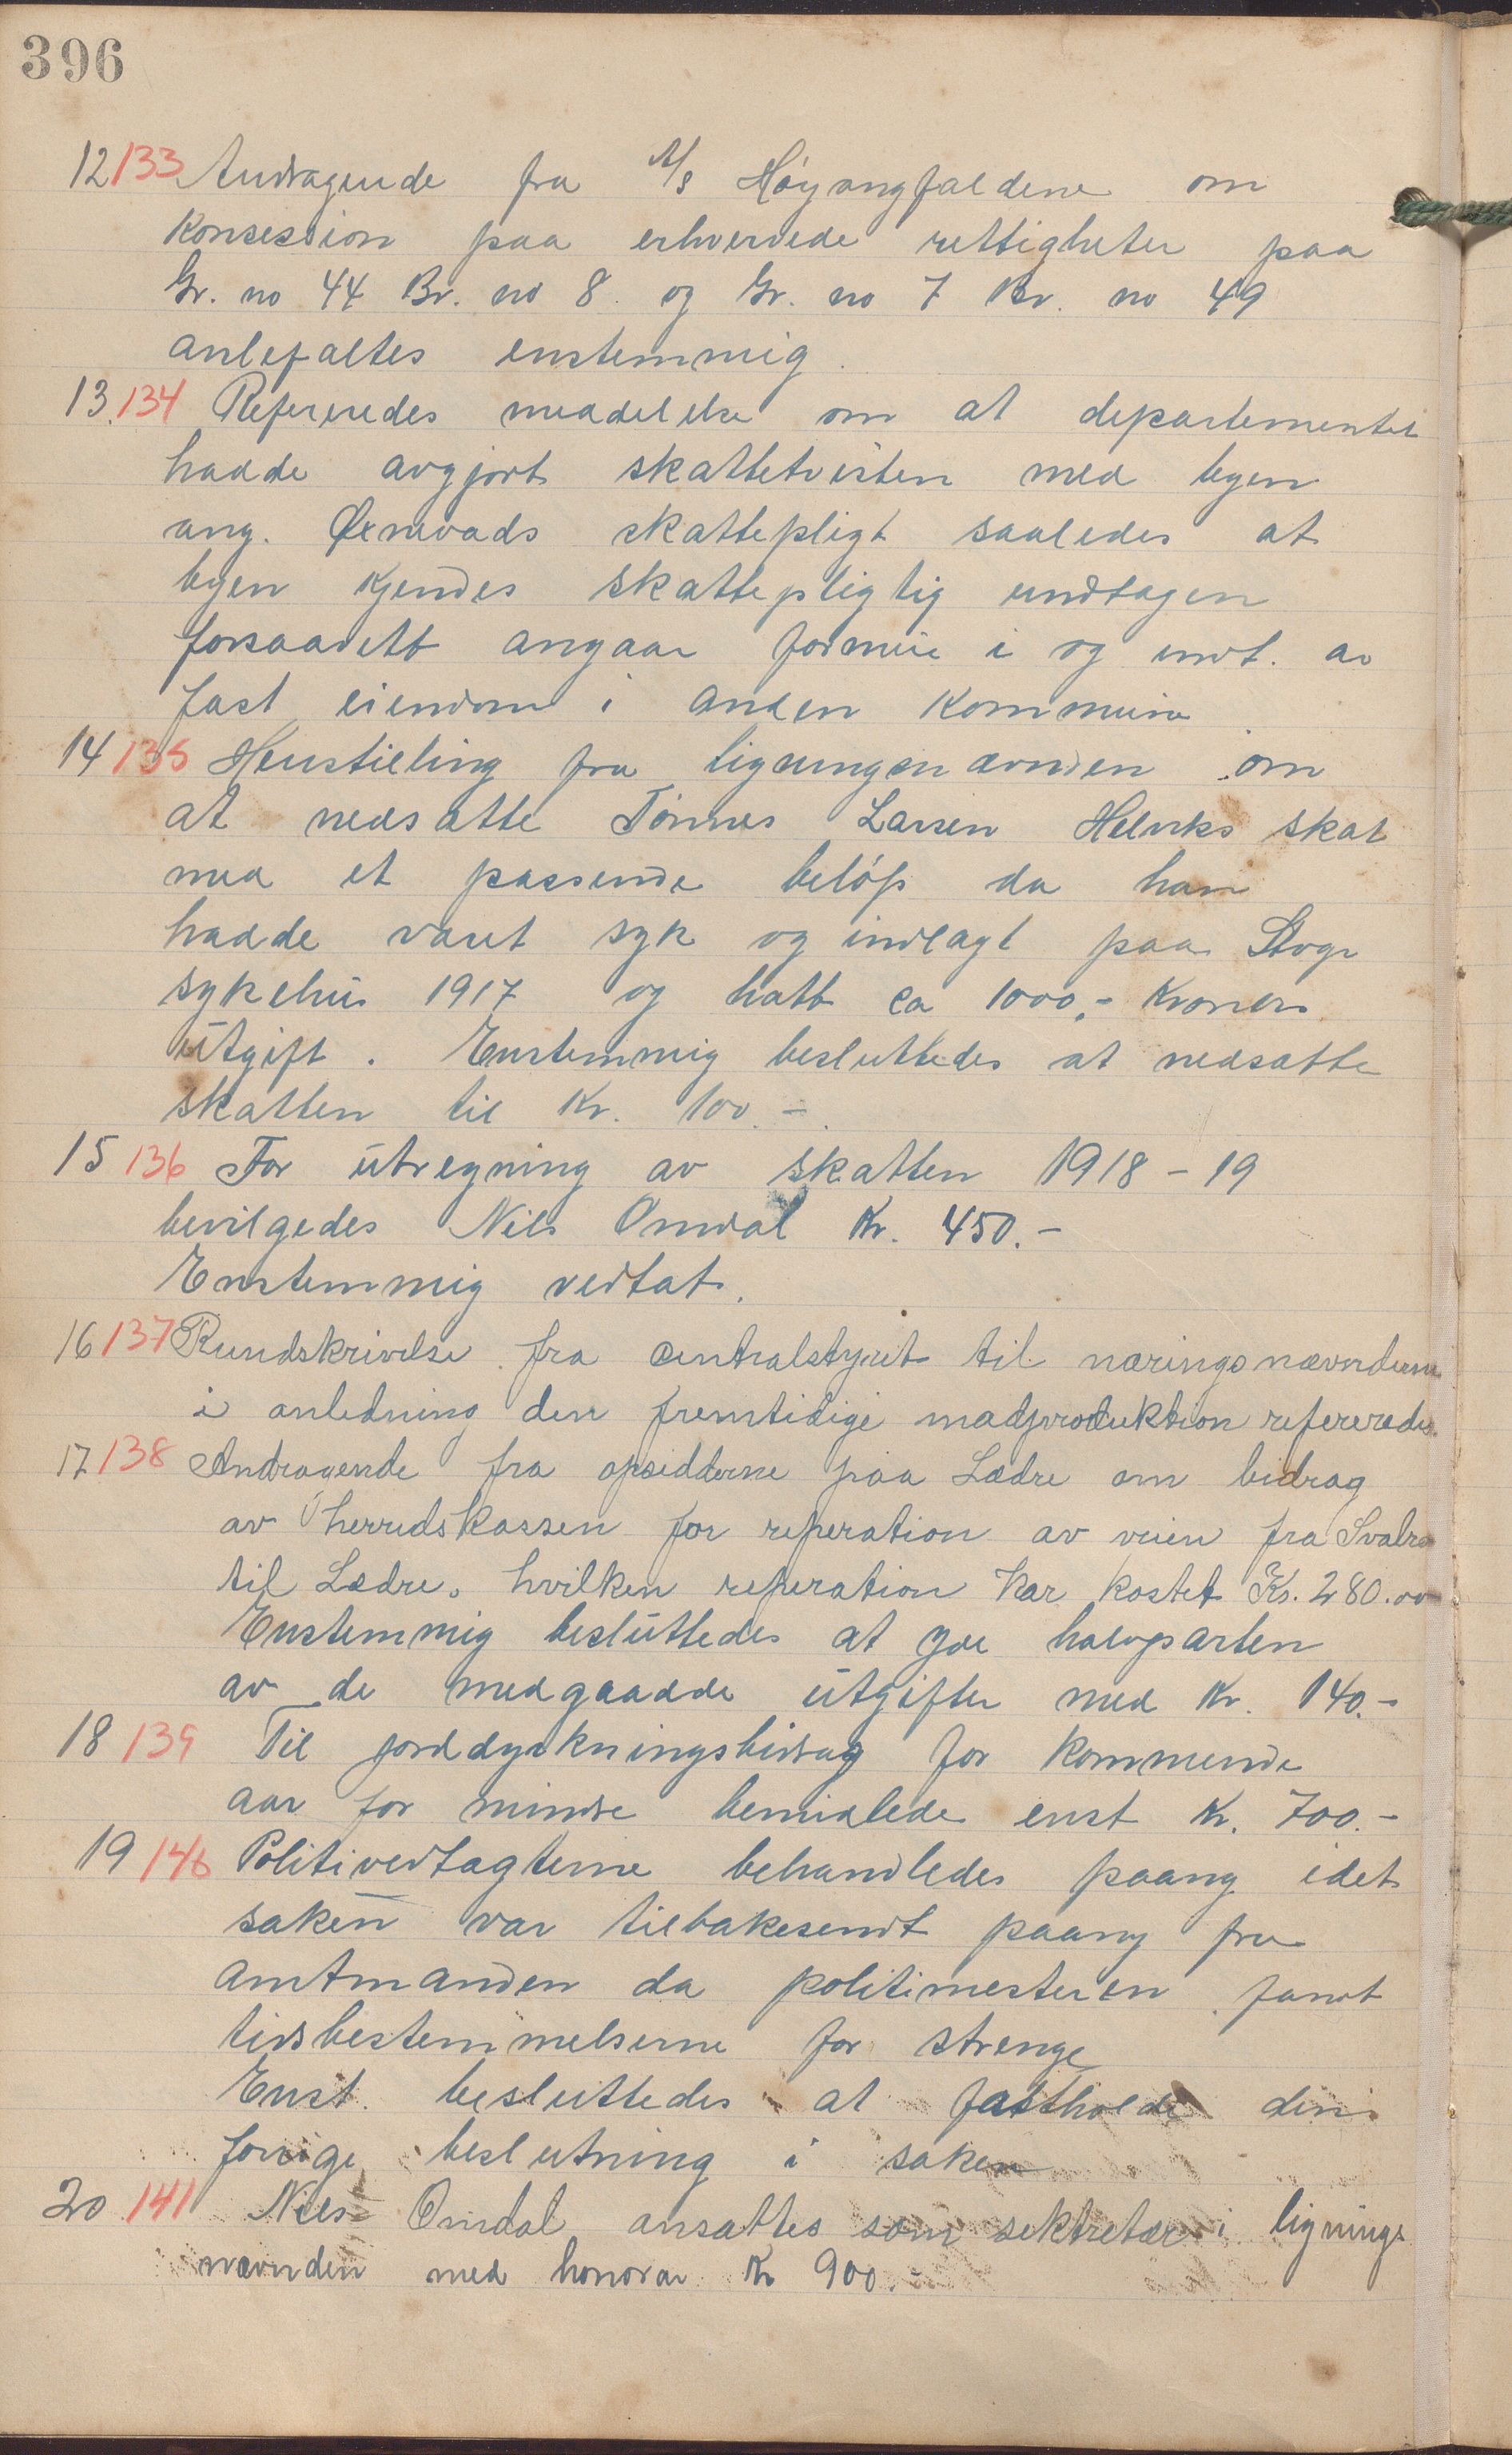 396
12 133 Andragende fra A/S Høyangfaldene om
konsession paa erhvervede rettigheter paa
Gr. no 44 Br. no 8. og Gr. no 7 Br. no 49
anbefaltes enstemmig.
13. 134 Refereredes meddelelse om at departementet
hadde avgjort skattetvisten med byen
ang. Øxnevads skattepligt saaledes at
byen kjendes skattepligtig undtagen
forsaavitt angaar formue i og indt. av
fast eiendom i anden kommune
14 135 Henstilling fra ligningsnævnden om
at nedsætte Tønnes Larsen Helviks skat
med et passende beløp da han
hadde været syk og indlagt paa Stvgr
sykehus 1917 og hatt ca 1000,- kroners
utgift. Enstemmig besluttedes at nedsætte
skatten til Kr. 100.-
15 136 For utregning av skatten 1918-19
bevilgedes Nils Omdal Kr. 450.-
Enstemmig vedtat.
16 137 Rundskrivelse fra centralstyret til næringsnævnderne
i anledning den fremtidige madproduktion refereredes.
17 138 Andragende fra opsidderne paa Lædre om bidrag
av herredskassen for reperation av veien fra
til Lædre, hvilken reperation har kostet Kr. 280.00
Enstemmig besluttedes at yde halvparten
av de medgaadde utgifter med Kr. 140.-
18 139 Til jorddyrkningsbidrag for kommende
aar for mindre bemidlede enst Kr. 700.-
19 140 Politivedtagterne behandledes paany idet
saken var tilbakesendt paany fra
amtmanden da politimesteren fandt
tidsbestemmelserne for strenge
Enst. besluttedes at fastholde den
forrige beslutning i saken
20 141 Nils Omdal ansattes som sekretær i lignings
nævnden med honorar Kr 900.-